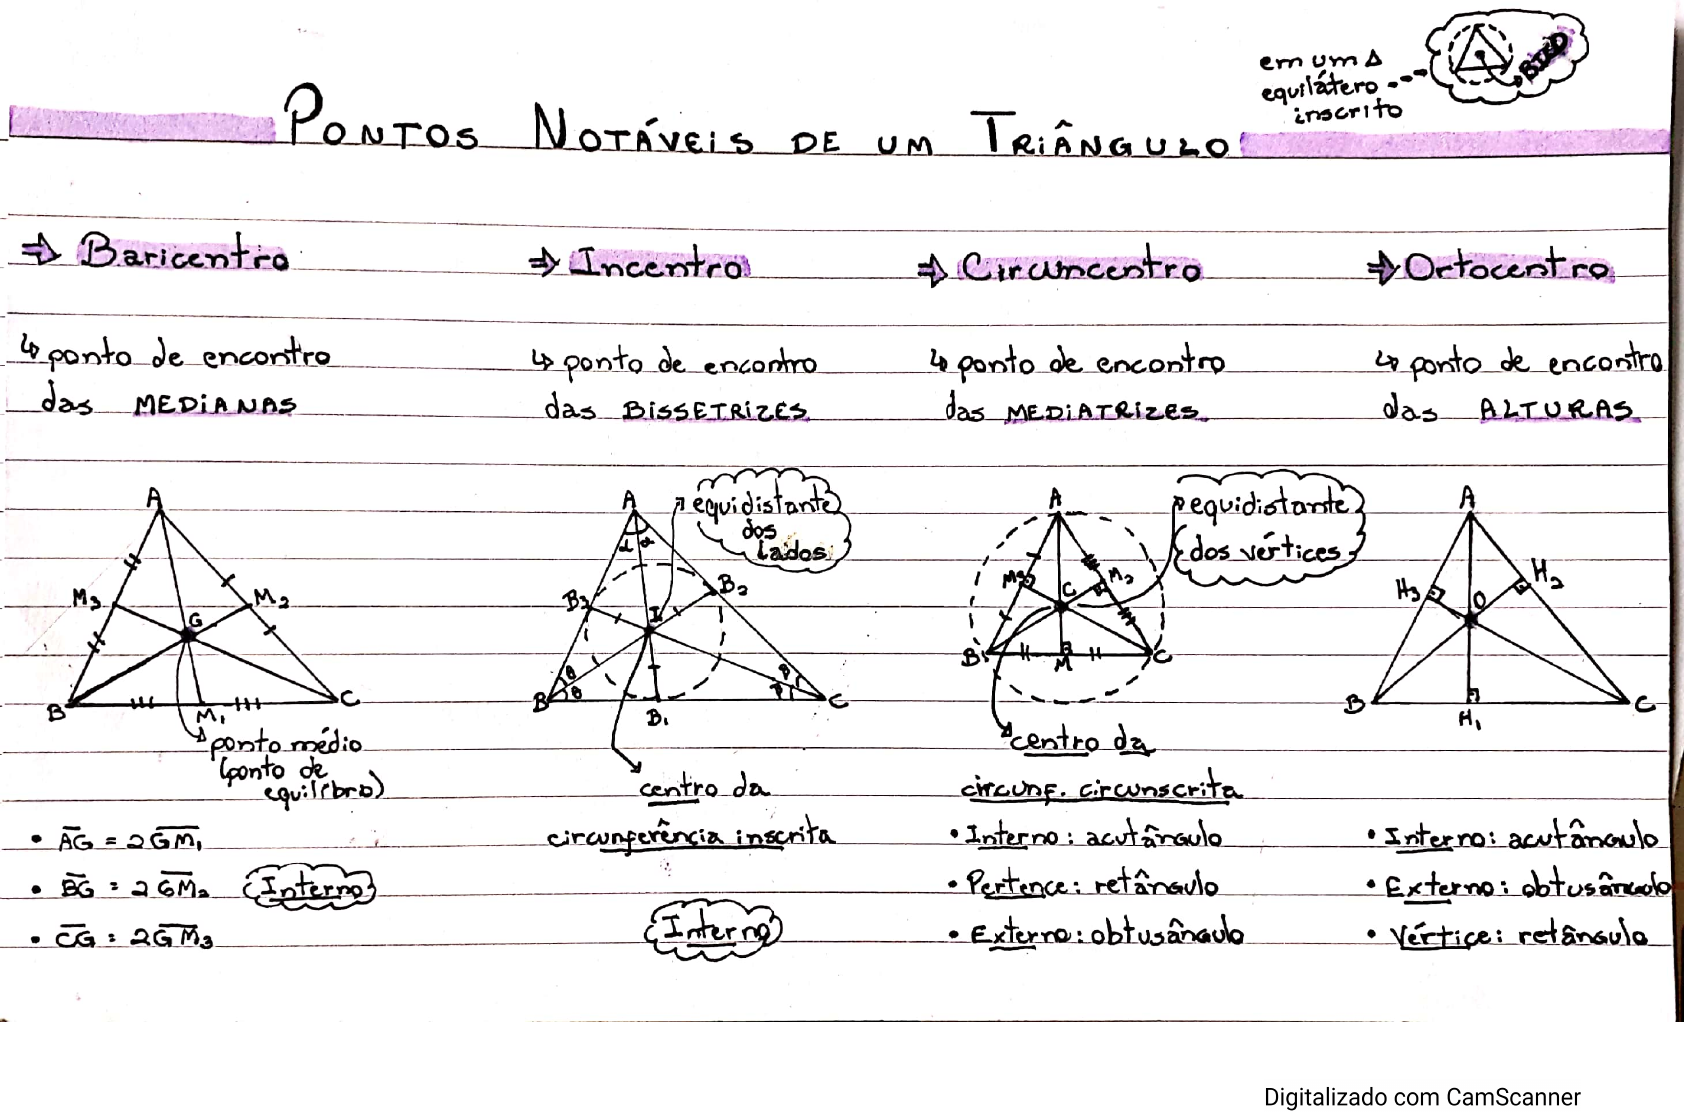 em um Δ
equilátero
inscrito
BICO
PONTOS NOTÁVEIS DE UM TRIÂNGULO
⇒ Baricentro
↳ ponto de encontro
das MEDIANAS
A
M₃
M₂
G
B
M₁
C
ponto médio
(ponto de
equilíbrio)
• AG = 2GM₁
• BG = 2GM₂ Interno
• CG = 2GM₃
⇒ Incentro
↳ ponto de encontro
das BISSETRIZES
equidistante
dos
lados
A
α α
B₃
B₂
I
θ
θ
β
β
B
B₁
C
centro da
circunferência inscrita
Interno
⇒ Circumcentro
↳ ponto de encontro
das MEDIATRIZES
equidistante
dos vértices
A
M₃
M₂
C
B
M
C
centro da
circunf. circunscrita
• Interno: acutângulo
• Pertence: retângulo
• Externo: obtusângulo
⇒ Ortocentro
↳ ponto de encontro
das ALTURAS
A
H₃
H₂
O
B
H₁
C
• Interno: acutângulo
• Externo: obtusângulo
• Vértice: retângulo
Digitalizado com CamScanner